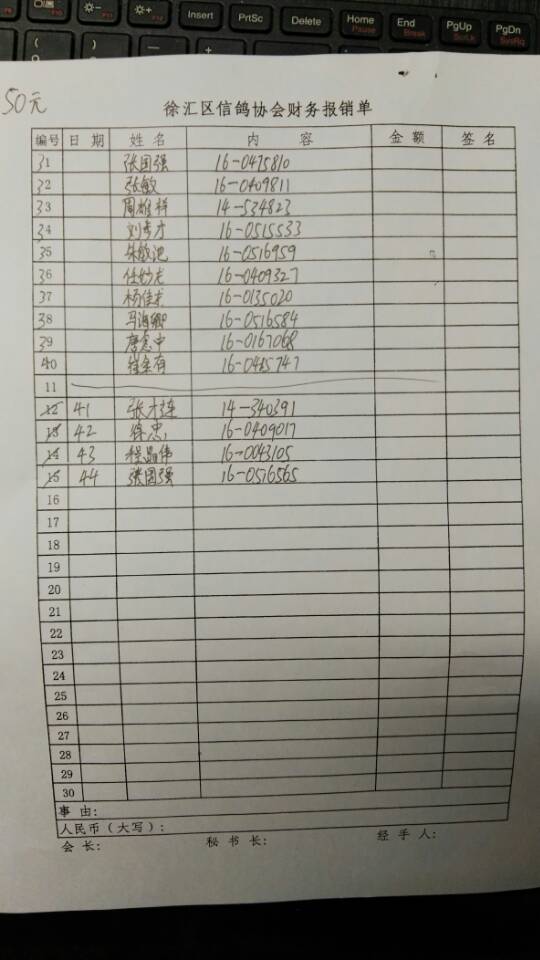 Insert PrtSc Delete Home End PgUp PgDn
Pause Break ScrLk SysRq
50元
徐汇区信鸽协会财务报销单
编号 日 期 姓 名 内 容 金 额 签 名
31 张国强 16-0475810
32 张敏 16-0409811
33 周雄祥 14-534823
34 16-0515533
35 16-0516959
36 16-0409327
37 16-0135020
38 马海卿 16-0516584
39 16-0167068
40 16-0485747
11
12 41 张才连 14-340391
13 42 徐忠 16-0409017
14 43 程晶伟 16-0043105
15 44 张国强 16-0516565
16
17
18
19
20
21
22
23
24
25
26
27
28
29
30
事 由:
人民币(大写):
会 长: 秘 书 长: 经 手 人: